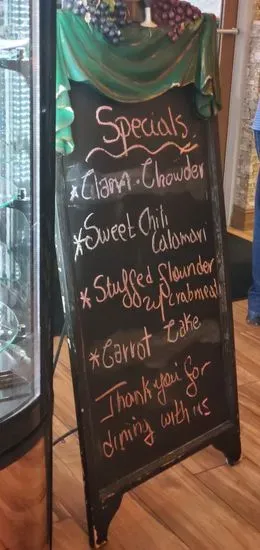 Specials
*Clam. Chowder
*Sweet Chili
Calamari
*Stuffed flounder
w/ Crabmeat
*Carrot Cake
Thank you for
dining with us